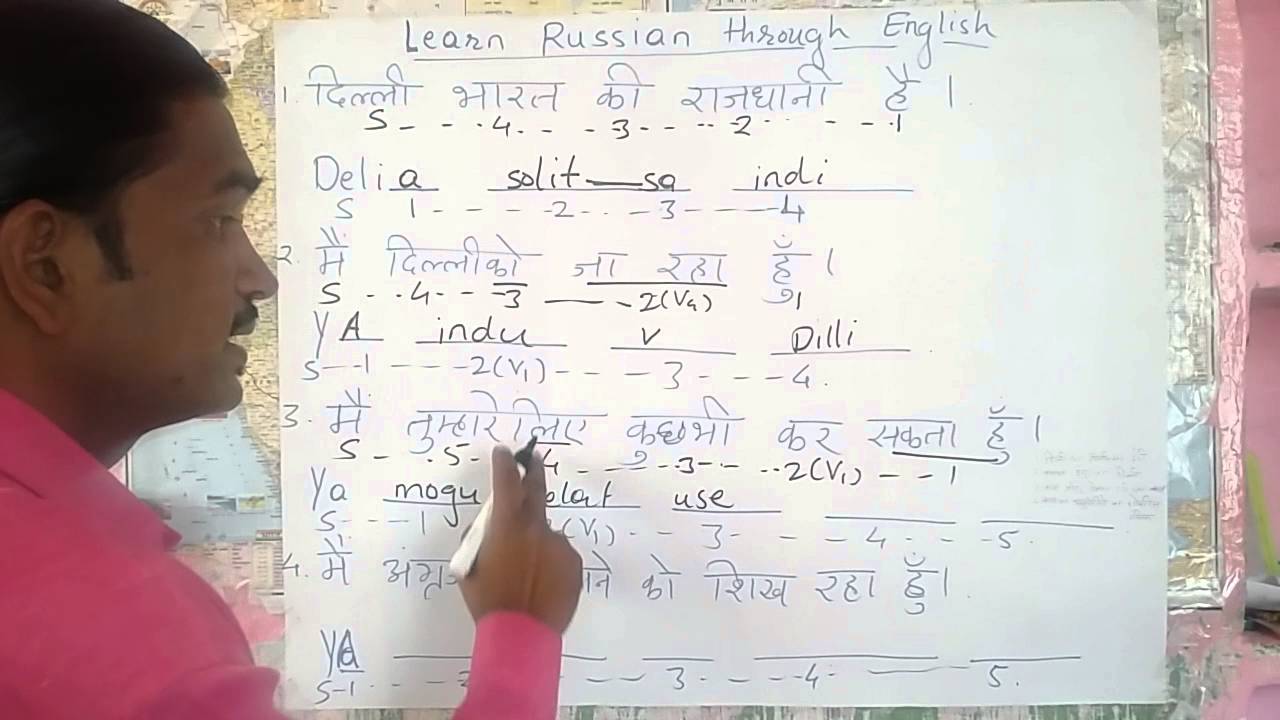 Learn Russian through English
1. दिल्ली भारत की राजधानी है ।
S - - - 4 - - - 3 - - - - 2 - - - - 1
Delia solit sa indi
S 1 - - - - 2 - - - 3 - - - - 4
2. मैं दिल्लीको जा रहा हूँ ।
S - - 4 - - 3 - - 2(V4) 1
YA indu v Dilli
S - - 1 - - - - 2(V1) - - - 3 - - - 4.
3. मैं तुम्हारे लिए कुछभी कर सकता हूँ ।
S - - 5 - 4 - - - 3 - - - 2(V1) - - 1
Ya mogu elat use
S - - - 1 (V1) - - 3 - - - 4 - - - 5.
4. मैं को शिख रहा हूँ ।
YA
S-1 - - - 3 - - - 4 - - 5.